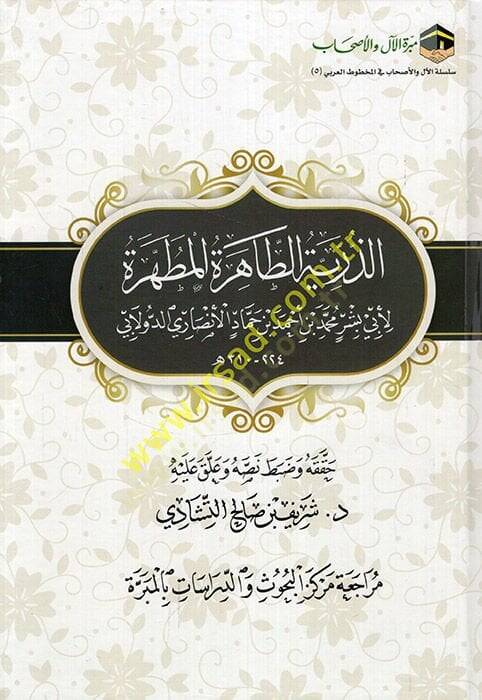 مبرة الآل والأصحاب
سلسلة الآل والأصحاب في المخطوط العربي (٥)
الذُّرِّيَّةُ الطَّاهِرَةُ المُطَهَّرَةُ
لِأَبِي بِشْرٍ مُحَمَّدِ بْنِ أَحْمَدَ بْنِ حَمَّادٍ الأَنْصَارِيِّ الدُّولَابِيِّ
٢٢٤-٣١٠هـ
حَقَّقَهُ وَضَبَطَ نَصَّهُ وَعَلَّقَ عَلَيْهِ
د. شريف بن صالح التشادي
مُرَاجَعَة مَرْكَز البُحُوث وَالدِّرَاسَات بِالمَبَرَّة
www.irsad.com.tr